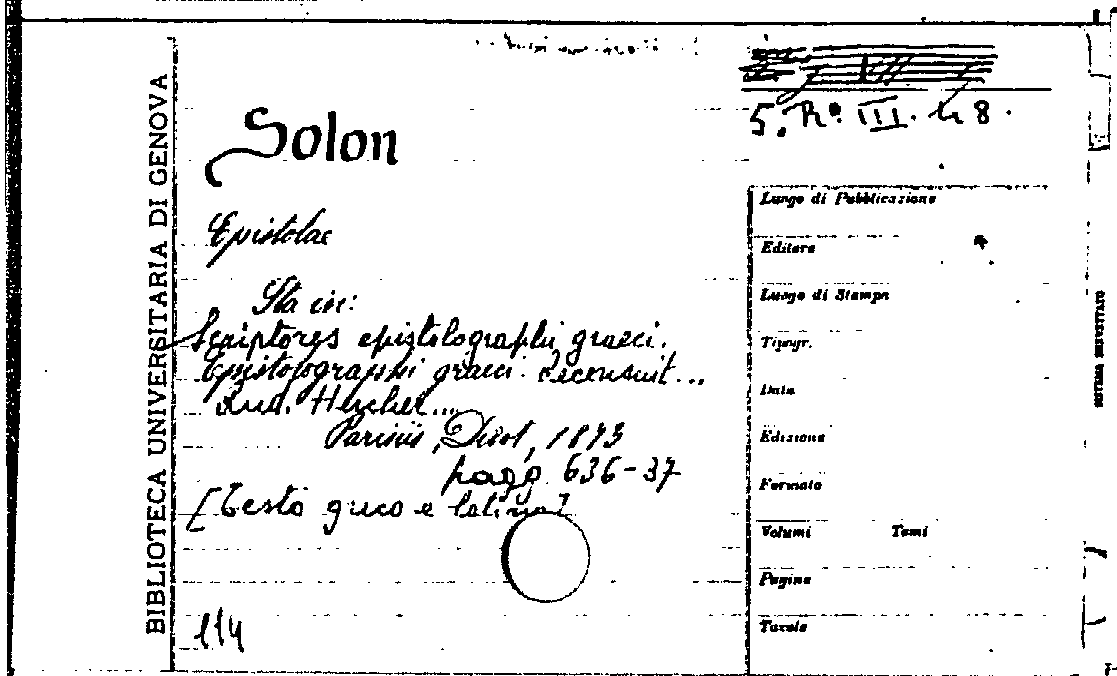 BIBLIOTECA UNIVERSITARIA DI GENOVA
5. Rº. III. 48.
Solon
Epistolae
Sta in:
Scriptores epistolographi graeci.
Epistolographi graeci. Recensuit...
Rud. Hercher...
Parisiis, Didot, 1873
pagg. 636-37
[Testo greco e latino]
114
Luogo di Pubblicazione
Editore
Luogo di Stampa
Tipogr.
Data
Edizione
Formato
Volumi Tomi
Pagine
Tavole